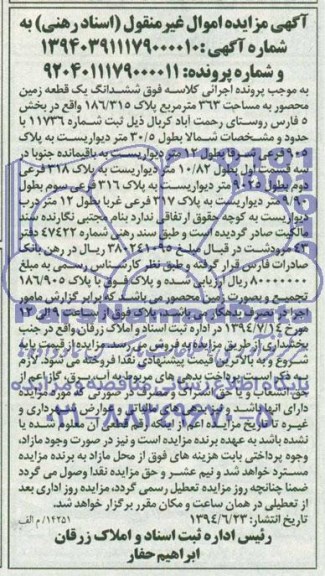 آگهی مزایده اموال غیرمنقول (اسناد رهنی) به
شماره آگهی: ۱۳۹۴۰۳۹۱۱۱۷۹۰۰۰۰۱۰
و شماره پرونده: ۹۲۰۴۰۱۱۱۷۹۰۰۰۰۱۱
به موجب پرونده اجرائی کلاسه فوق ششدانگ یک قطعه زمین
محصور به مساحت ۳۶۳ مترمربع پلاک ۱۸۶/۳۱۵ واقع در بخش
۵ فارس روستای رحمت آباد کربال ذیل ثبت شماره ۱۱۷۳۶ با
حدود و مشخصات شمالا بطول ۳۰/۵ متر دیواریست به پلاک
۹۰۵ فرعی شرقا بطول ۱۲ متر دیواریست به باقیمانده جنوبا در
سه قسمت اول بطول ۱۰/۸۲ متر دیواریست به پلاک ۳۱۸ فرعی
دوم بطول ۹/۲۵ متر دیواریست به پلاک ۳۱۶ فرعی سوم بطول
۹/۹۰ متر دیواریست به پلاک ۳۱۷ فرعی غربا بطول ۱۲ متر درب
دیواریست به کوچه حقوق ارتفاقی ندارد بنام مجتبی نگارنده سند
مالکیت صادر گردیده است و طبق سند رهنی شماره ۴۷۴۲۲ دفتر
۴۳ مرودشت در قبال مبلغ ۳۸۰۲۴۱۰۹۵ ریال در رهن بانک
صادرات فارس قرار گرفته و طبق نظر کارشناس رسمی به مبلغ
ریال ارزیابی شده و پلاک فوق با پلاک ۱۸۶/۹۰۵
تجمیع و بصورت زمین محصور می باشد که برابر گزارش مامور
اجرا در تصرف بدهکار می باشد. پلاک فوق از ساعت ۹ الی ۱۲
مورخ ۱۳۹۴/۷/۱۴ در اداره ثبت اسناد و املاک زرقان واقع در جنب
بخشداری از طریق مزایده به فروش می رسد. مزایده از قیمت پایه
شروع و به بالاترین قیمت پیشنهادی نقدا فروخته می شود. لازم
به ذکر است پرداخت بدهی های مربوط به آب، برق، گاز اعم از
حق انشعاب و یا حق اشتراک و مصرف در صورتی که مورد مزایده
دارای آنها باشد و نیز بدهی های مالیاتی و عوارض شهرداری و
غیره تا تاریخ مزایده اعم از اینکه رقم قطعی آن معلوم شده یا
نشده باشد به عهده برنده مزایده است و نیز در صورت وجود مازاد،
وجوه پرداختی بابت هزینه های فوق از محل مازاد به برنده مزایده
مسترد خواهد شد و نیم عشر و حق مزایده نقدا وصول می گردد
ضمنا چنانچه روز مزایده تعطیل رسمی گردد، مزایده روز اداری بعد
از تعطیلی در همان ساعت و مکان مقرر برگزار خواهد شد.
تاریخ انتشار: ۱۳۹۴/۶/۲۳
۱۴۲۵۱/م الف
رئیس اداره ثبت اسناد و املاک زرقان
ابراهیم حفار
پایگاه اطلاع رسانی مناقصه و مزایده
۰۲۱-۸۸۳۴۹۶۷۰-۵